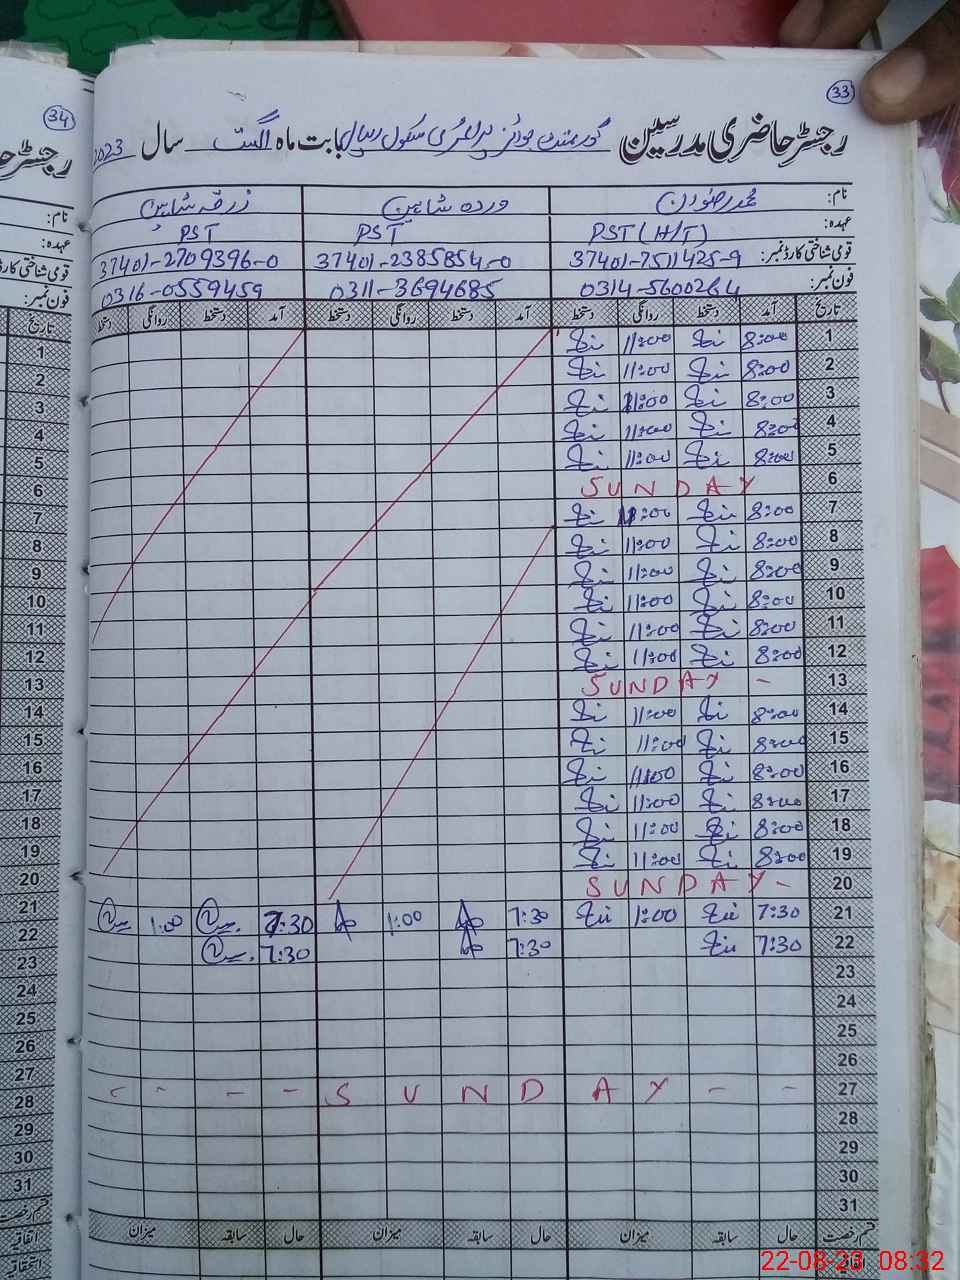 33
رجسٹر حاضری مدرسین گورنمنٹ بوائز پرائمری سکول بابت ماہ اگست سال 2023
نام: محمد رضوان وردہ شاہین زرقہ شاہین
عہدہ: PST (H/T) PST PST
قومی شناختی کارڈ نمبر: 37401-7511425-9 37401-2385854-0 37401-2709396-0
فون نمبر: 0314-5600264 0311-3694685 0316-0559459
تاریخ آمد دستخط روانگی دستخط آمد دستخط روانگی دستخط آمد دستخط روانگی دستخط
1 8:00 11:00
2 8:00 11:00
3 8:00 11:00
4 8:00 11:00
5 8:00 11:00
6 SUNDAY
7 8:00 11:00
8 8:00 11:00
9 8:00 11:00
10 8:00 11:00
11 8:00 11:00
12 8:00 11:00
13 SUNDAY -
14 8:00 11:00
15 8:00 11:00
16 8:00 11:00
17 8:00 11:00
18 8:00 11:00
19 8:00 11:00
20 SUNDAY -
21 7:30 1:00 7:30 1:00 7:30 1:00
22 7:30 7:30 7:30
23
24
25
26
27 - - - - SUNDAY - -
28
29
30
31
قسم رخصت حال سابقہ میزان حال سابقہ میزان حال سابقہ میزان
اتفاقیہ
34
رجسٹر حا
نام:
عہدہ:
قومی شناختی کارڈ
فون نمبر:
تاریخ
1
2
3
4
5
6
7
8
9
10
11
12
13
14
15
16
17
18
19
20
21
22
23
24
25
26
27
28
29
30
31
قسم رخصت
اتفاقیہ
استحقاقیہ
22-08-23 08:32